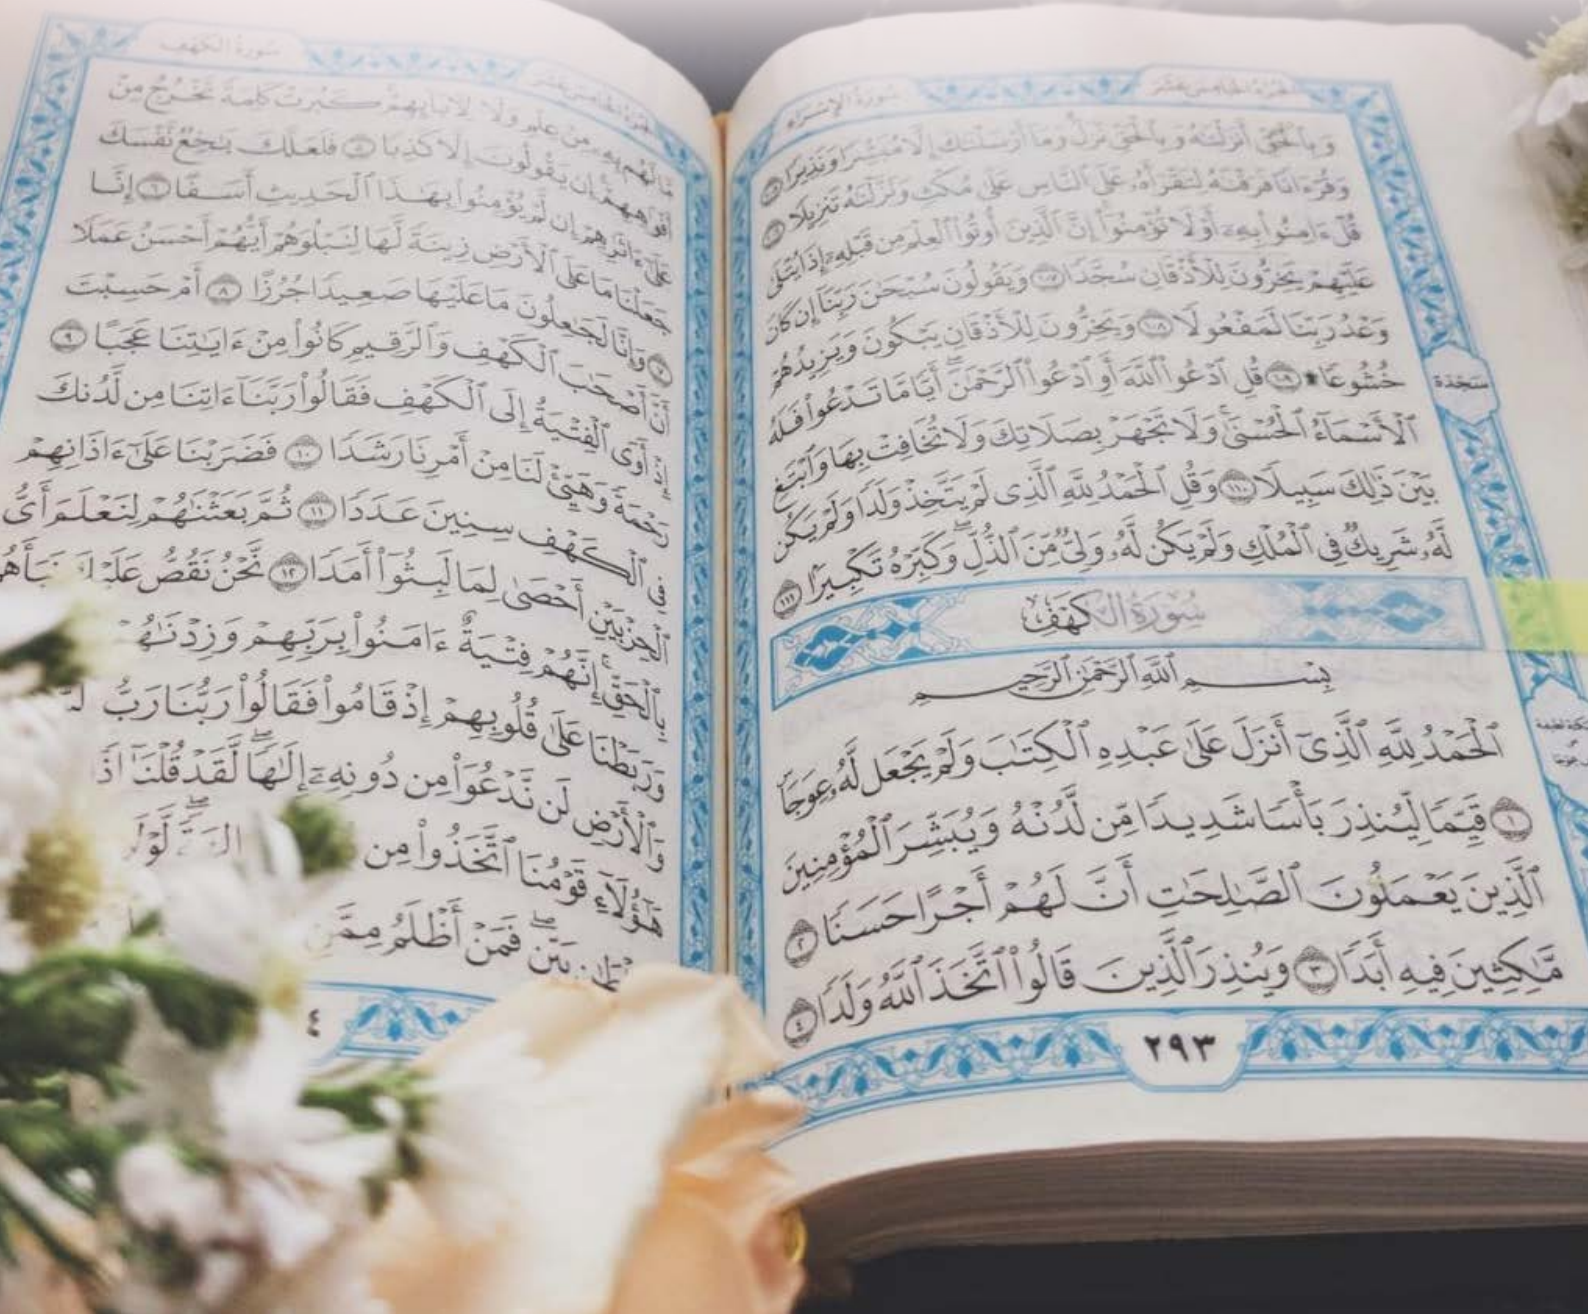 الجزء الخامس عشر سورة الإسراء
وَبِٱلْحَقِّ أَنزَلْنَٰهُ وَبِٱلْحَقِّ نَزَلَ وَمَآ أَرْسَلْنَٰكَ إِلَّا مُبَشِّرًا وَنَذِيرًا ١٠٥
وَقُرْءَانًا فَرَقْنَٰهُ لِتَقْرَأَهُۥ عَلَى ٱلنَّاسِ عَلَىٰ مُكْثٍ وَنَزَّلْنَٰهُ تَنزِيلًا ١٠٦
قُلْ ءَامِنُوا۟ بِهِۦٓ أَوْ لَا تُؤْمِنُوٓا۟ إِنَّ ٱلَّذِينَ أُوتُوا۟ ٱلْعِلْمَ مِن قَبْلِهِۦٓ إِذَا يُتْلَىٰ
عَلَيْهِمْ يَخِرُّونَ لِلْأَذْقَانِ سُجَّدًا ١٠٧ وَيَقُولُونَ سُبْحَٰنَ رَبِّنَآ إِن كَانَ
وَعْدُ رَبِّنَا لَمَفْعُولًا ١٠٨ وَيَخِرُّونَ لِلْأَذْقَانِ يَبْكُونَ وَيَزِيدُهُمْ
خُشُوعًا ۩ ١٠٩ قُلِ ٱدْعُوا۟ ٱللَّهَ أَوِ ٱدْعُوا۟ ٱلرَّحْمَٰنَ ۖ أَيًّا مَّا تَدْعُوا۟ فَلَهُ
سَجْدَة
ٱلْأَسْمَآءُ ٱلْحُسْنَىٰ ۚ وَلَا تَجْهَرْ بِصَلَاتِكَ وَلَا تُخَافِتْ بِهَا وَٱبْتَغِ
بَيْنَ ذَٰلِكَ سَبِيلًا ١١٠ وَقُلِ ٱلْحَمْدُ لِلَّهِ ٱلَّذِى لَمْ يَتَّخِذْ وَلَدًا وَلَمْ يَكُن
لَّهُۥ شَرِيكٌ فِى ٱلْمُلْكِ وَلَمْ يَكُن لَّهُۥ وَلِىٌّ مِّنَ ٱلذُّلِّ ۖ وَكَبِّرْهُ تَكْبِيرًۢا ١١١
سُورَةُ الكَهْفِ
بِسْمِ ٱللَّهِ ٱلرَّحْمَٰنِ ٱلرَّحِيمِ
ٱلْحَمْدُ لِلَّهِ ٱلَّذِىٓ أَنزَلَ عَلَىٰ عَبْدِهِ ٱلْكِتَٰبَ وَلَمْ يَجْعَل لَّهُۥ عِوَجَا ۜ
١ قَيِّمًا لِّيُنذِرَ بَأْسًا شَدِيدًا مِّن لَّدُنْهُ وَيُبَشِّرَ ٱلْمُؤْمِنِينَ
ٱلَّذِينَ يَعْمَلُونَ ٱلصَّٰلِحَٰتِ أَنَّ لَهُمْ أَجْرًا حَسَنًا ٢
مَّٰكِثِينَ فِيهِ أَبَدًا ٣ وَيُنذِرَ ٱلَّذِينَ قَالُوا۟ ٱتَّخَذَ ٱللَّهُ وَلَدًا ٤
٢٩٣
الجزء الخامس عشر سورة الكهف
مَّا لَهُم بِهِۦ مِنْ عِلْمٍ وَلَا لِءَابَآئِهِمْ ۚ كَبُرَتْ كَلِمَةً تَخْرُجُ مِنْ
أَفْوَٰهِهِمْ ۚ إِن يَقُولُونَ إِلَّا كَذِبًا ٥ فَلَعَلَّكَ بَٰخِعٌ نَّفْسَكَ
عَلَىٰٓ ءَاثَٰرِهِمْ إِن لَّمْ يُؤْمِنُوا۟ بِهَٰذَا ٱلْحَدِيثِ أَسَفًا ٦ إِنَّا
جَعَلْنَا مَا عَلَى ٱلْأَرْضِ زِينَةً لَّهَا لِنَبْلُوَهُمْ أَيُّهُمْ أَحْسَنُ عَمَلًا
٧ وَإِنَّا لَجَٰعِلُونَ مَا عَلَيْهَا صَعِيدًا جُرُزًا ٨ أَمْ حَسِبْتَ
أَنَّ أَصْحَٰبَ ٱلْكَهْفِ وَٱلرَّقِيمِ كَانُوا۟ مِنْ ءَايَٰتِنَا عَجَبًا ٩
إِذْ أَوَى ٱلْفِتْيَةُ إِلَى ٱلْكَهْفِ فَقَالُوا۟ رَبَّنَآ ءَاتِنَا مِن لَّدُنكَ
رَحْمَةً وَهَيِّئْ لَنَا مِنْ أَمْرِنَا رَشَدًا ١٠ فَضَرَبْنَا عَلَىٰٓ ءَاذَانِهِمْ
فِى ٱلْكَهْفِ سِنِينَ عَدَدًا ١١ ثُمَّ بَعَثْنَٰهُمْ لِنَعْلَمَ أَىُّ
ٱلْحِزْبَيْنِ أَحْصَىٰ لِمَا لَبِثُوٓا۟ أَمَدًا ١٢ نَّحْنُ نَقُصُّ عَلَيْكَ نَبَأَهُم
بِٱلْحَقِّ ۚ إِنَّهُمْ فِتْيَةٌ ءَامَنُوا۟ بِرَبِّهِمْ وَزِدْنَٰهُمْ
وَرَبَطْنَا عَلَىٰ قُلُوبِهِمْ إِذْ قَامُوا۟ فَقَالُوا۟ رَبُّنَا رَبُّ
وَٱلْأَرْضِ لَن نَّدْعُوَا۟ مِن دُونِهِۦٓ إِلَٰهًا ۖ لَّقَدْ قُلْنَآ إِذًا
هَٰٓؤُلَآءِ قَوْمُنَا ٱتَّخَذُوا۟ مِن
بَيِّنٍ ۖ فَمَنْ أَظْلَمُ مِمَّنِ